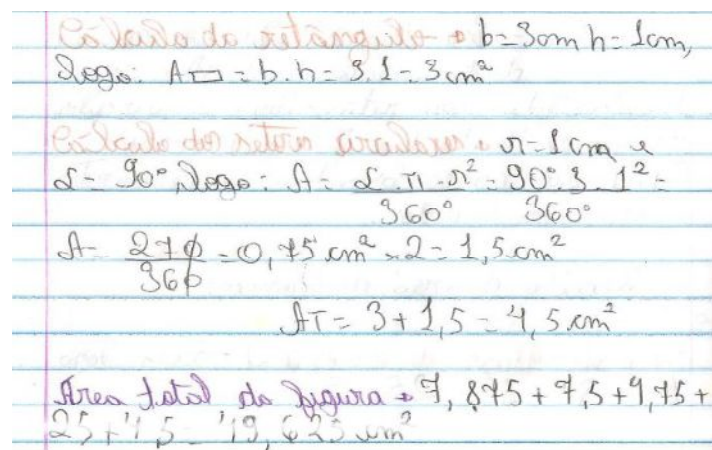 Cálculo do retângulo → b=3cm h=1cm,
Logo: A▭ = b.h = 3.1 = 3cm²
Cálculo dos setores circulares → r=1cm e
α = 90°, logo: A = α.π.r²/360° = 90°.3.1²/360° =
A = 270/360 = 0,75cm² . 2 = 1,5cm²
AT = 3 + 1,5 = 4,5cm²
Área total da figura → 7,875 + 7,5 + 4,75 +
25 + 4,5 = 49,625 cm²